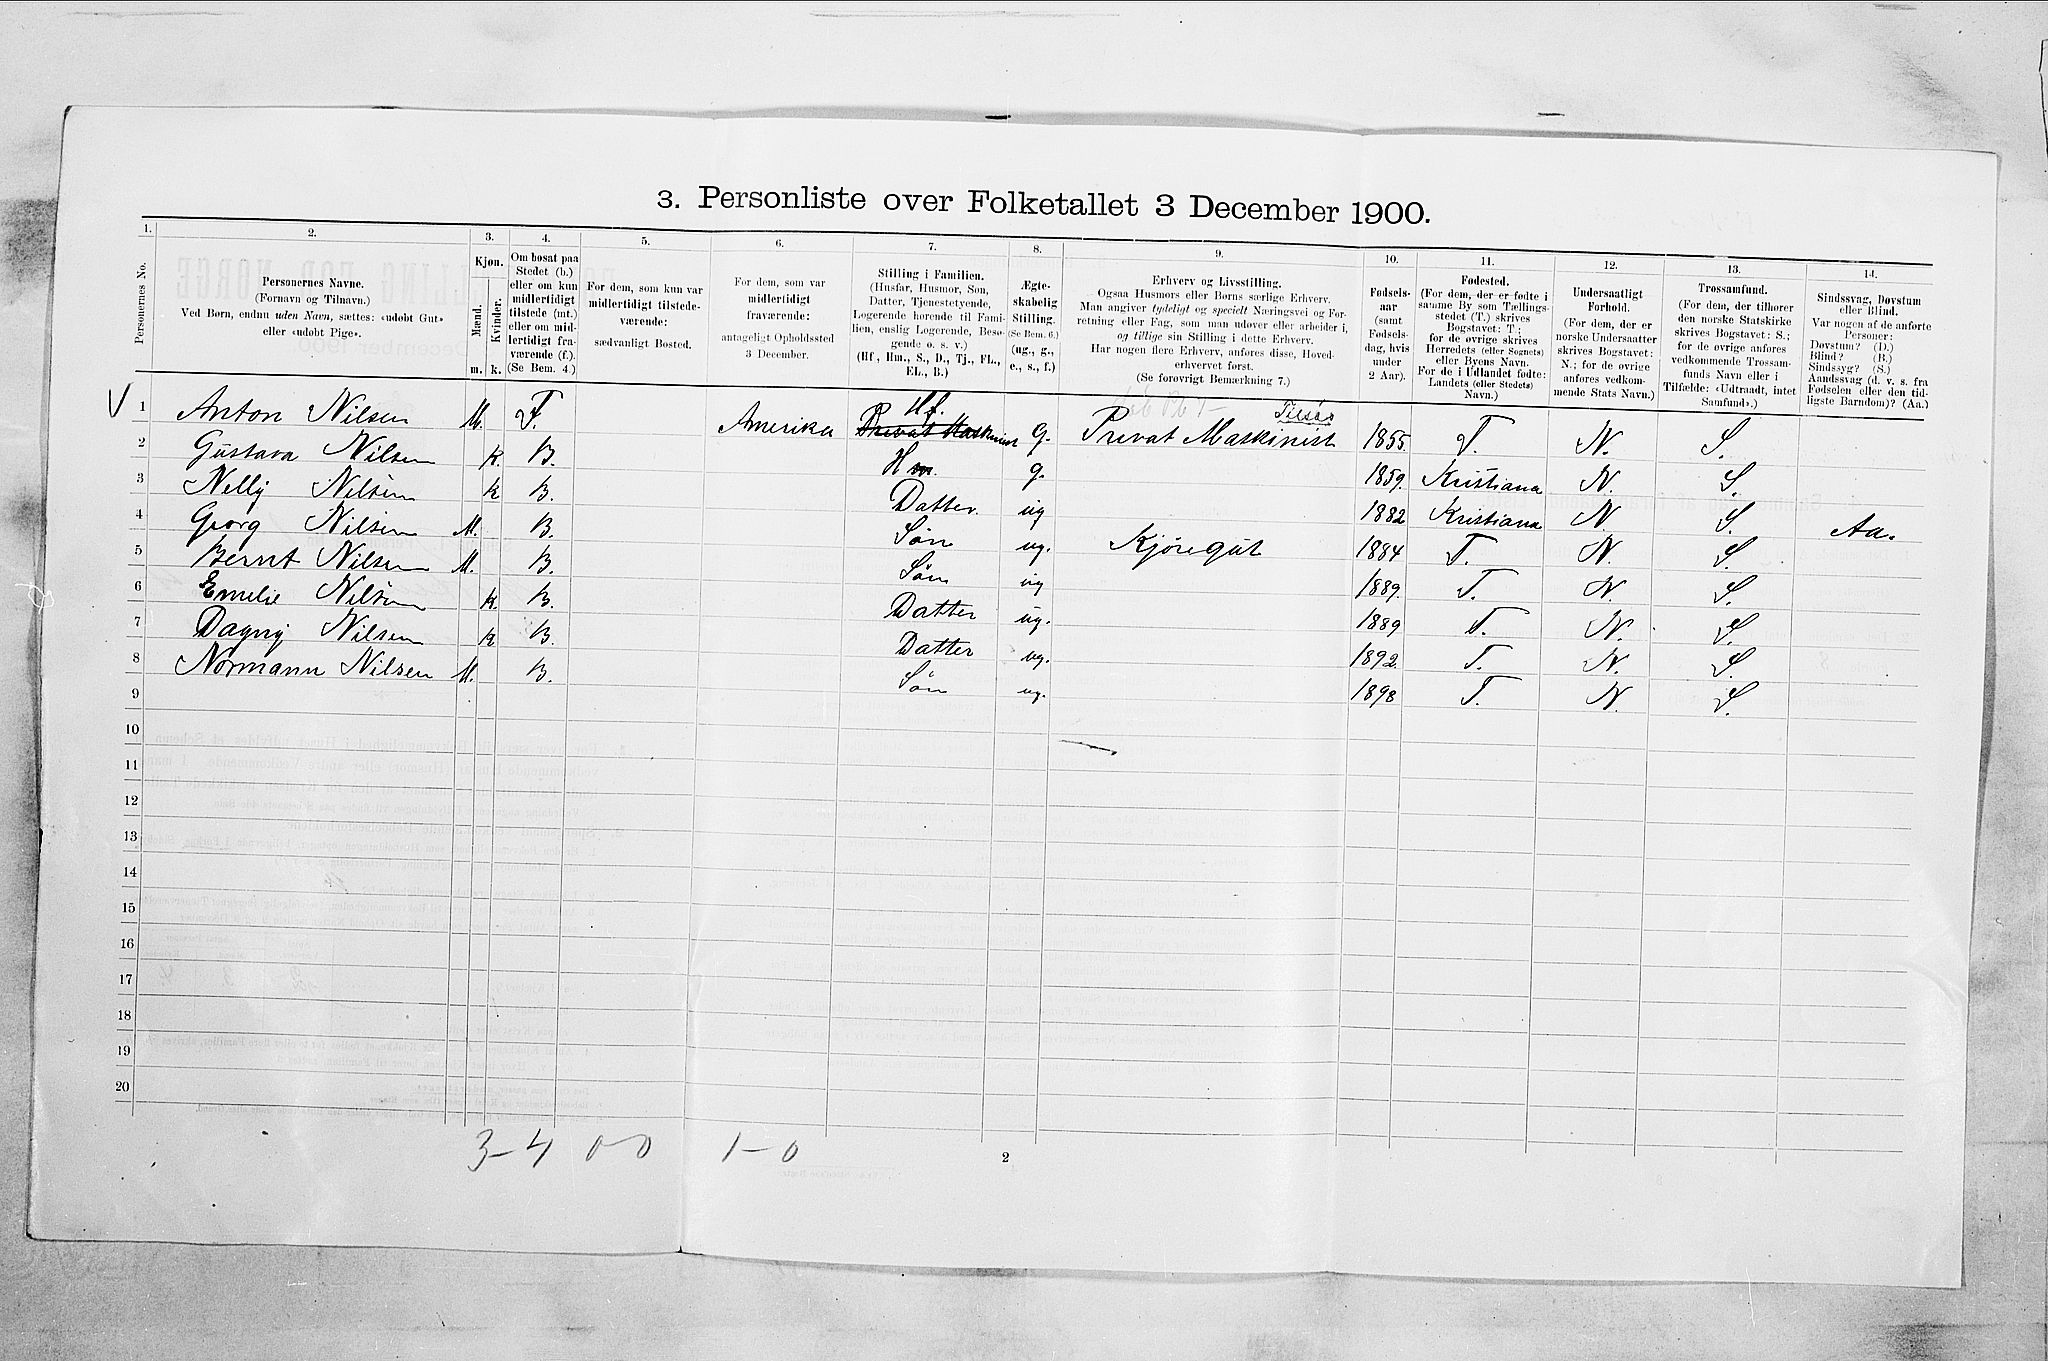 3. Personliste over Folketallet 3 December 1900.
1. 2. 3. 4. 5. 6. 7. 8. 9. 10. 11. 12. 13. 14.
Personernes No.
Personernes Navne.
(Fornavn og Tilnavn.)
Ved Børn, endnu uden Navn, sættes: «udøbt Gut»
eller «udøbt Pige».
Kjøn.
Mænd.
Kvinder.
m. k.
Om bosat paa
Stedet (b.)
eller om kun
midlertidigt
tilstede (mt.)
eller om mid-
lertidigt fra-
værende (f.).
(Se Bem. 4.)
For dem, som kun var
midlertidigt tilstede-
værende:
sædvanligt Bosted.
For dem, som var
midlertidigt
fraværende:
antageligt Opholdssted
3 December.
Stilling i Familien.
(Husfar, Husmor, Søn,
Datter, Tjenestetyende,
Logerende hørende til Fami-
lien, enslig Logerende, Besø-
gende o. s. v.)
(Hf., Hm., S., D., Tj., FL.,
EL., B.)
Ægte-
skabelig
Stilling.
(Se Bem. 6.)
(ug., g.,
e., s., f.)
Erhverv og Livsstilling.
Ogsaa Husmors eller Børns særlige Erhverv.
Man angiver tydeligt og specielt Næringsvei og For-
retning eller Fag, som man udøver eller arbeider i,
og tillige sin Stilling i dette Erhverv.
Har nogen flere Erhverv, anføres disse, Hoved-
erhvervet først.
(Se forøvrigt Bemerkning 7.)
Fødsels-
aar
(samt
Fødsels-
dag, hvis
under
2 Aar).
Fødested.
(For dem, der er fødte i
samme By som Tællings-
stedet (T.) skrives
Bogstavet: T;
for de øvrige skrives
Herredets (eller Sognets)
eller Byens Navn.
For de i Udlandet fødte:
Landets (eller Stedets)
Navn.)
Undersaatligt
Forhold.
(For dem, der er
norske Undersaatter
skrives Bogstavet:
N.; for de øvrige
anføres vedkom-
mende Stats Navn.)
Trossamfund.
(For dem, der tilhører
den norske Statskirke
skrives Bogstavet: S.;
for de øvrige anføres
vedkommende Trossam-
funds Navn eller i
Tilfælde: «Udtraadt, intet
Samfund».)
Sindssvag, Døvstum
eller Blind.
Var nogen af de anførte
Personer:
Døvstum? (D.)
Blind? (B.)
Sindssyg? (S.)
Aandssvag (d. v. s. fra
Fødselen eller den tid-
ligste Barndom)? (Aa.)
1 Anton Nilsen M. F. Amerika Hf. Privat Maskinist G. Privat Maskinist 1855. T. N. S.
2 Gustava Nilsen K. B. Hm. g. 1859. Kristiana N. S.
3 Nelly Nilsen K B. Datter. ug 1882 Kristiana N. S. Aa.
4 Georg Nilsen M. B. Søn ug. Kjøregut 1884 T. N. S.
5 Bernt Nilsen M. B. Søn ug 1889. T. N. S.
6 Emelie Nilsen K. B. Datter ug. 1889 T. N. S.
7 Dagny Nilsen K B. Datter ug. 1892. T. N. S.
8 Normann Nilsen M. B. Søn ug. 1898 T. N. S.
9
10
11
12
13
14
15
16
17
18
19
20
3-4 0-0 1-0
2